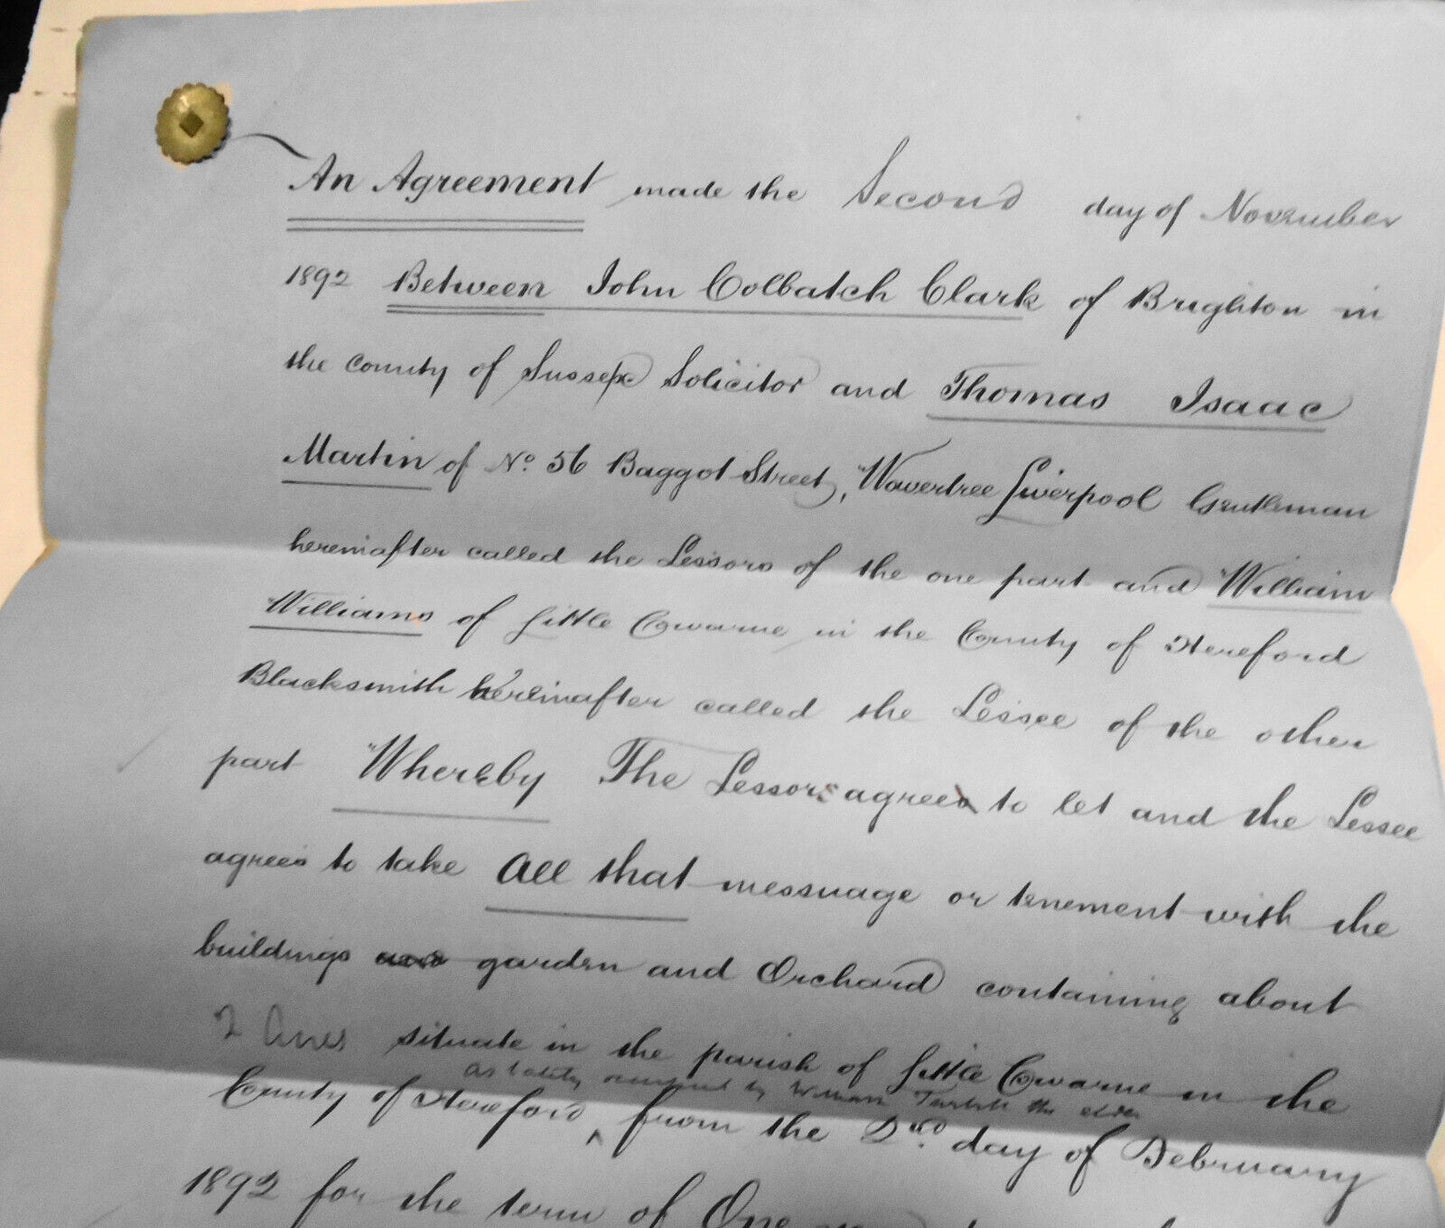 An Agreement made the Second day of November
1892 Between John Colbatch Clark of Brighton in
the county of Sussex Solicitor and Thomas Isaac
Martin of No. 56 Baggot Street, Wavertree Liverpool Gentleman
hereinafter called the Lessors of the one part and William
Williams of Little Cowarne in the County of Hereford
Blacksmith hereinafter called the Lessee of the other
part Whereby The Lessors agree to let and the Lessee
agrees to take All that messuage or tenement with the
buildings garden and Orchard containing about
2 Acres situate in the parish of Little Cowarne in the
as lately occupied by William the elder
County of Hereford from the 2nd day of February
1892 for the term of One